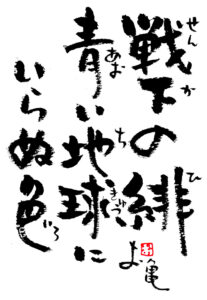 戦下の緋
せん か ひ
青い地球に
あお ち きゅう
いらぬ色
いろ